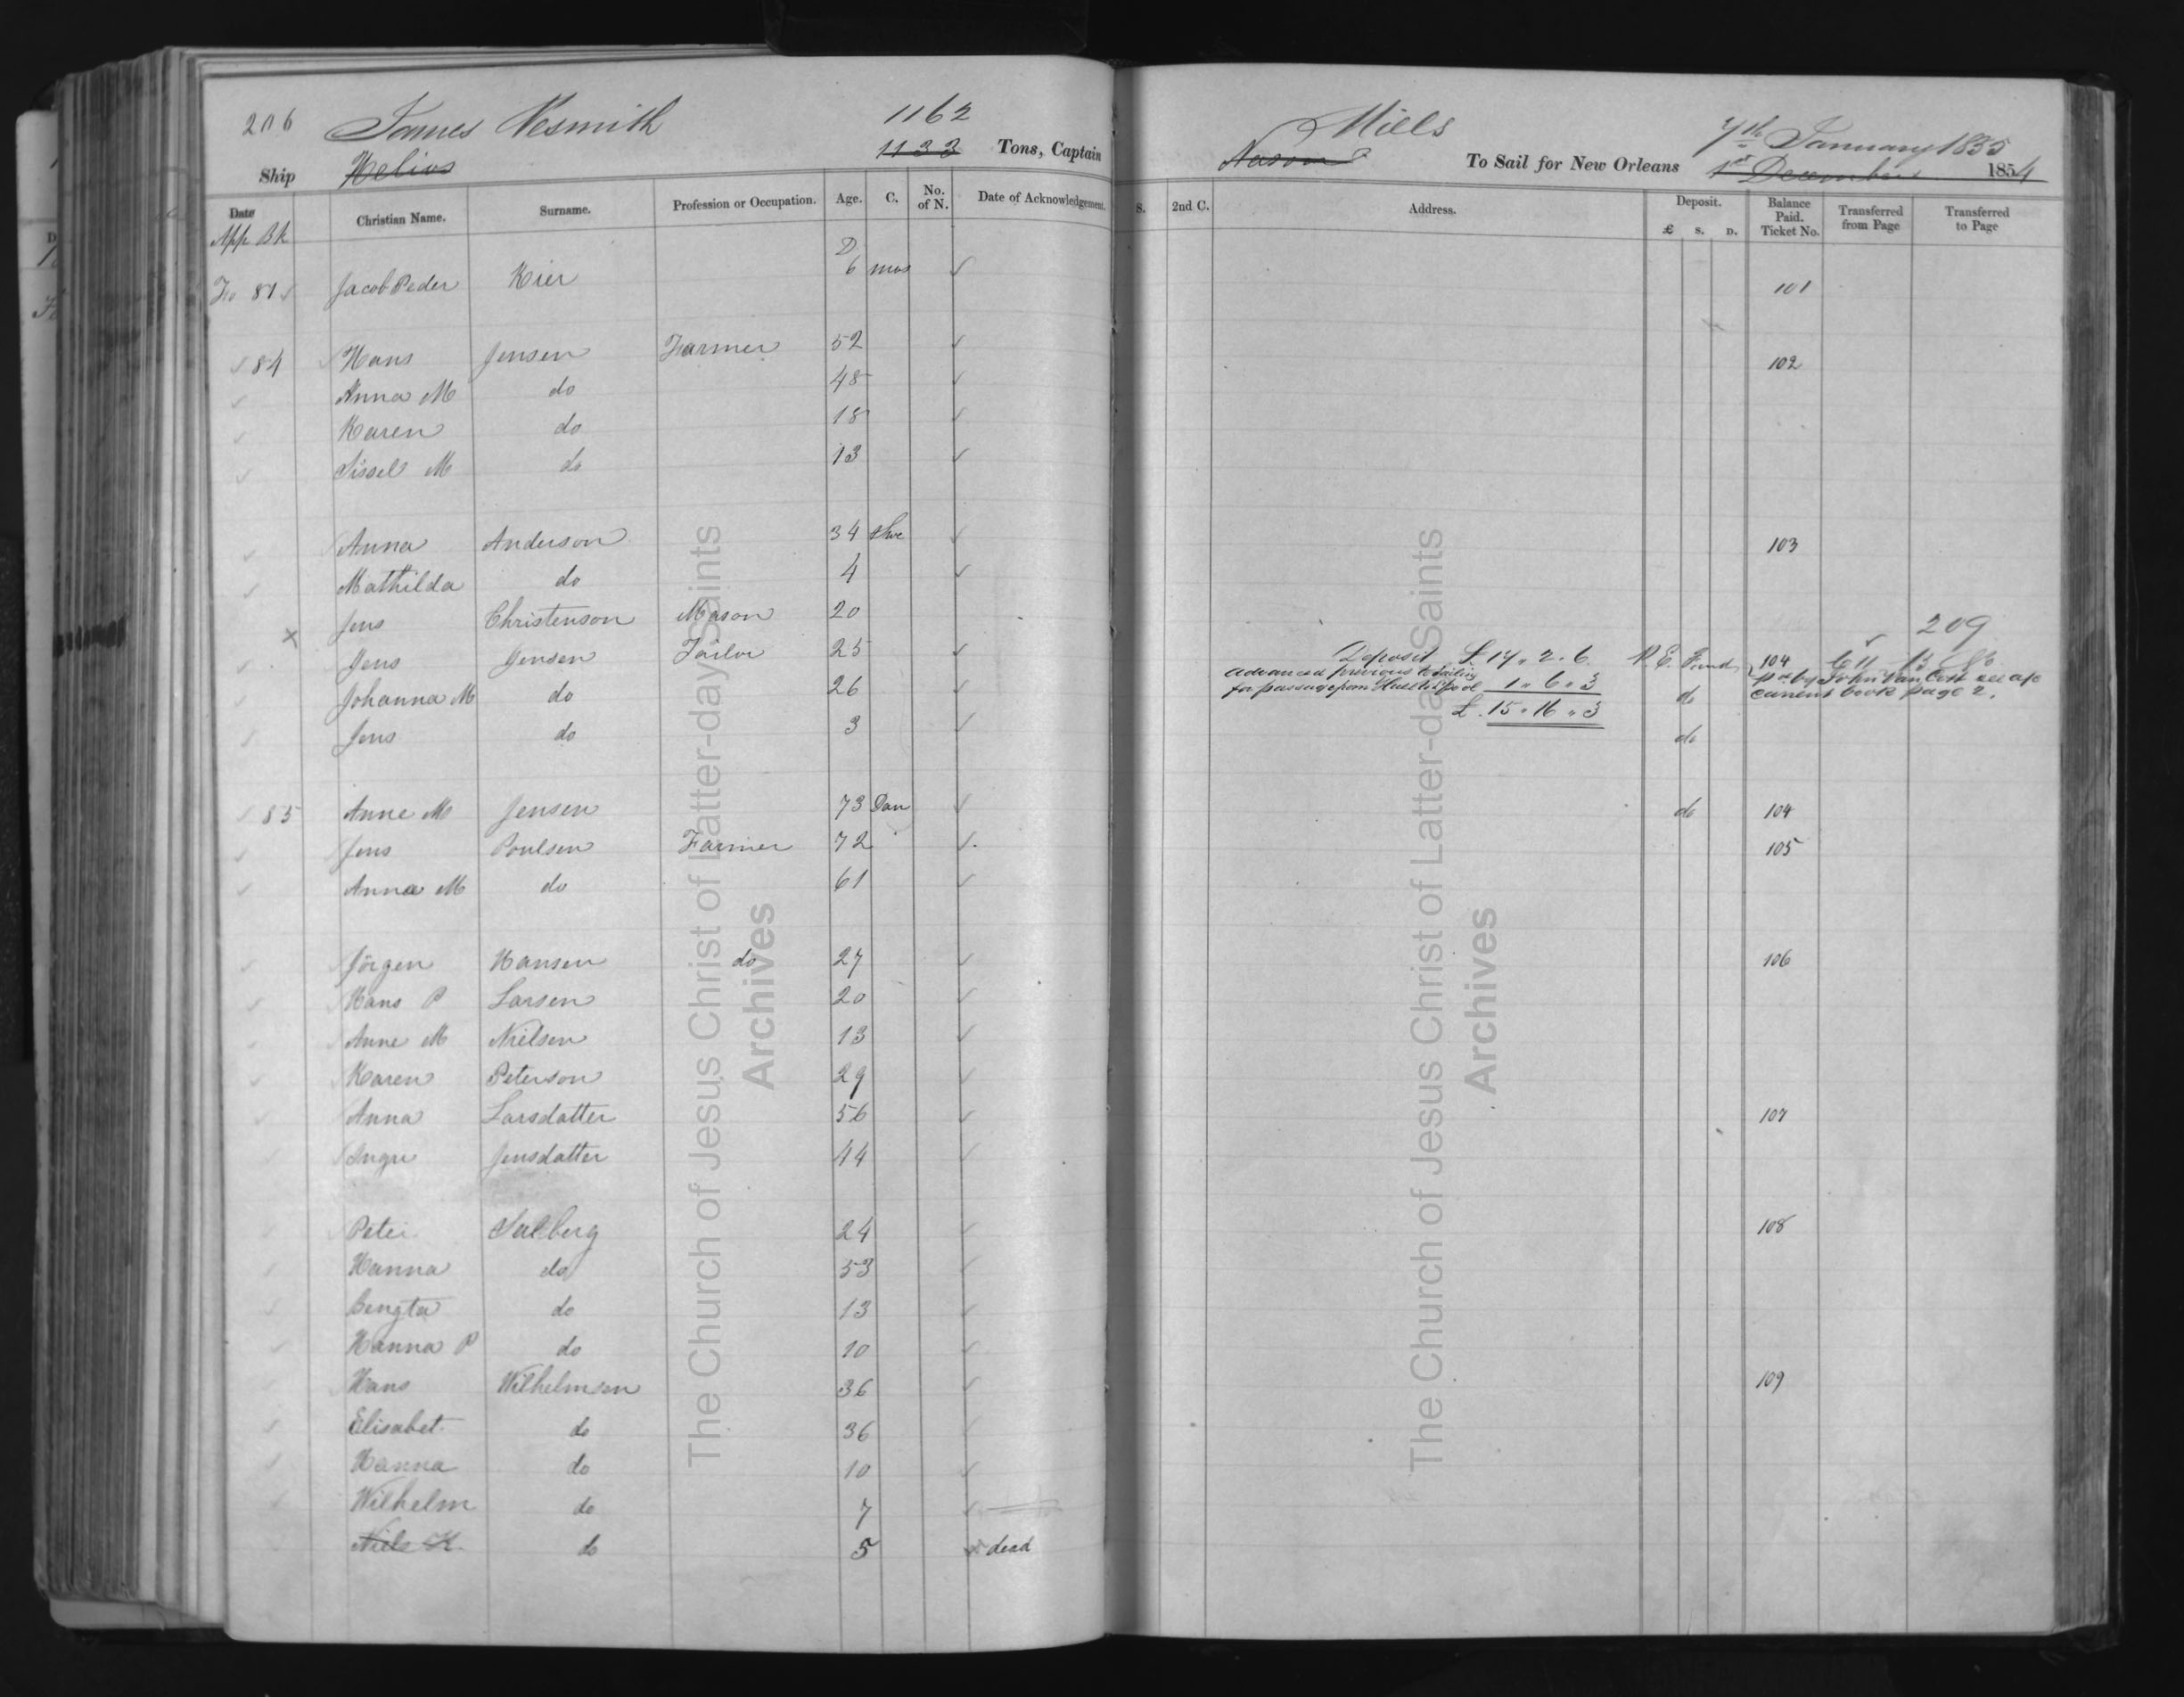 206 James Nesmith 1162 Mills 7th January 1855
Ship Helios 1133 Tons, Captain To Sail for New Orleans 1st December 1854
Date Christian Name. Surname. Profession or Occupation. Age. C. No. of N. Date of Acknowledgement. S. 2nd C. Address. Deposit. £ S. D. Balance Paid. Ticket No. Transferred from Page Transferred to Page
App Bk
Fo 81 Jacob Peder Kier 6 mos 101
84 Hans Jensen Farmer 52 102
Anna M do 48
Karen do 18
Sissel M do 13
Anna Anderson 34 Swe 103
Mathilda do 4
x Jens Christenson Mason 20 209
Jens Jensen Tailor 25 Deposit £ 14 " 2 " 6 P. E. Fund 104
Johanna M do 26 advanced previous to sailing for passage from Hull to L'pool 1 " 6 " 3 do pd by John Van Cott see a/c current book page 2.
Jens do 3 £ 15 " 16 " 3 do
85 Anne M Jensen 73 Dan do 104
Jens Poulsen Farmer 72 105
Anna M do 61
Jörgen Hansen do 27 106
Hans P Larsen 20
Anne M Nielsen 13
Karen Peterson 29
Anna Larsdatter 56 107
Ingri Jensdatter 44
Peter Salberg 24 108
Hanna do 53
Bengta do 13
Hanna P do 10
Hans Wilhelmsen 36 109
Elisabet do 36
Hanna do 10
Wilhelm do 7
Niels K. do 5 dead
The Church of Jesus Christ of Latter-day Saints
Archives
The Church of Jesus Christ of Latter-day Saints
Archives